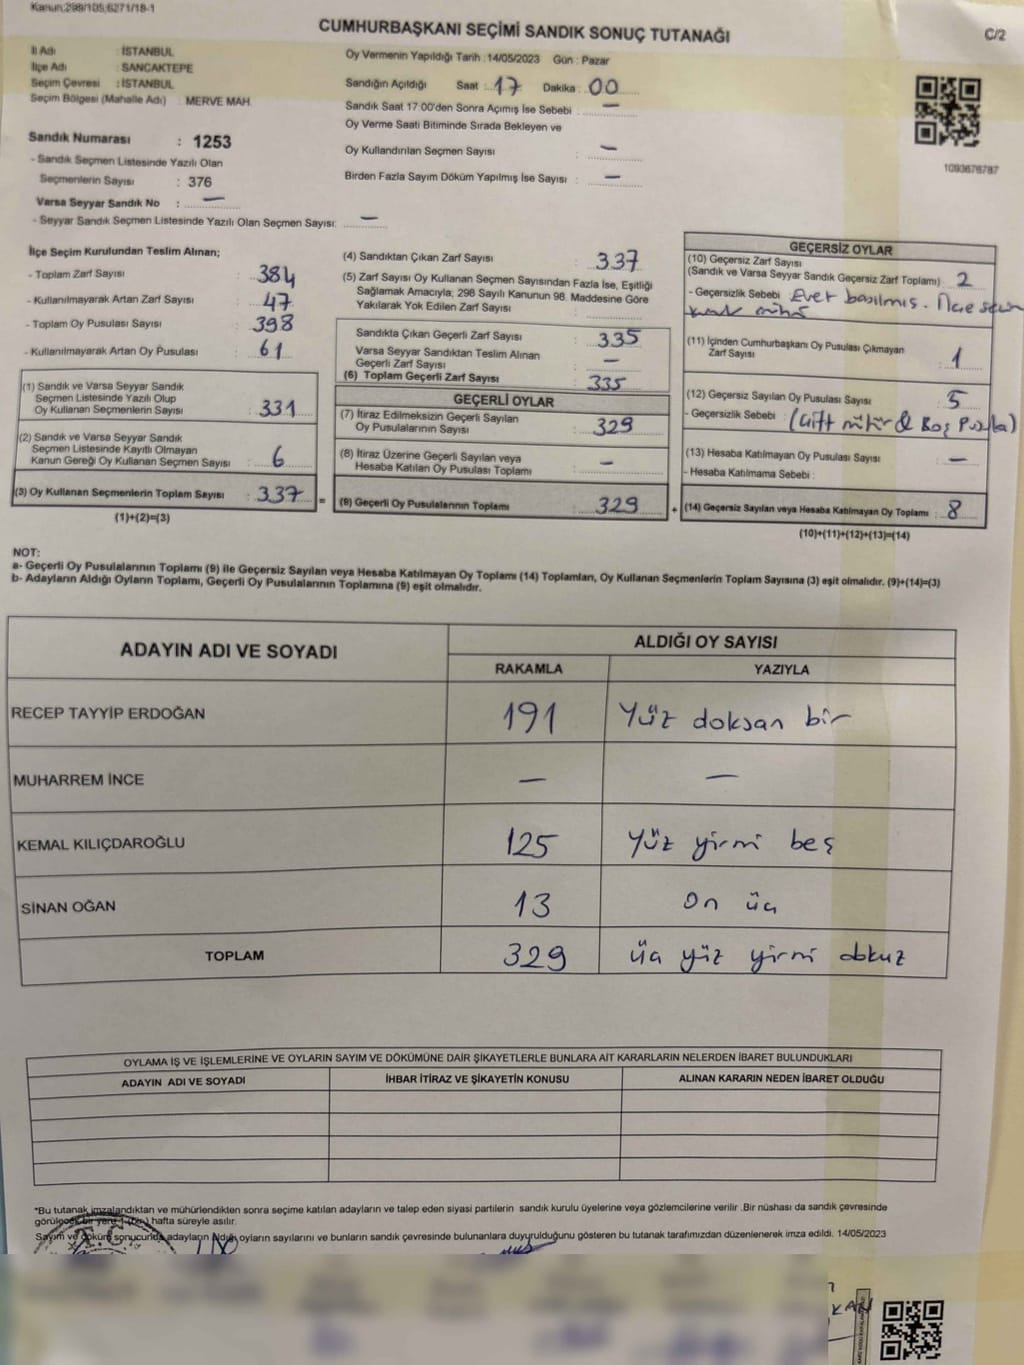 Kanun:298/105,6271/18-1
CUMHURBAŞKANI SEÇİMİ SANDIK SONUÇ TUTANAĞI
C/2
İl Adı : İSTANBUL
İlçe Adı : SANCAKTEPE
Seçim Çevresi : İSTANBUL
Seçim Bölgesi (Mahalle Adı) : MERVE MAH.
Oy Vermenin Yapıldığı Tarih : 14/05/2023 Gün : Pazar
Sandığın Açıldığı Saat : 17 Dakika : 00
Sandık Saat 17:00'den Sonra Açımış İse Sebebi : —
Oy Verme Saati Bitiminde Sırada Bekleyen ve
Oy Kullandırılan Seçmen Sayısı : —
Birden Fazla Sayım Döküm Yapılmış İse Sayısı : —
1093676787
Sandık Numarası : 1253
- Sandık Seçmen Listesinde Yazılı Olan
Seçmenlerin Sayısı : 376
Varsa Seyyar Sandık No : —
- Seyyar Sandık Seçmen Listesinde Yazılı Olan Seçmen Sayısı: —
İlçe Seçim Kurulundan Teslim Alınan;
- Toplam Zarf Sayısı : 384
- Kullanılmayarak Artan Zarf Sayısı : 47
- Toplam Oy Pusulası Sayısı : 398
- Kullanılmayarak Artan Oy Pusulası : 61
(1) Sandık ve Varsa Seyyar Sandık
Seçmen Listesinde Yazılı Olup
Oy Kullanan Seçmenlerin Sayısı : 331
(2) Sandık ve Varsa Seyyar Sandık
Seçmen Listesinde Kayıtlı Olmayan
Kanun Gereği Oy Kullanan Seçmen Sayısı : 6
(3) Oy Kullanan Seçmenlerin Toplam Sayısı : 337
(1)+(2)=(3)
(4) Sandıktan Çıkan Zarf Sayısı : 337
(5) Zarf Sayısı Oy Kullanan Seçmen Sayısından Fazla İse, Eşitliği
Sağlamak Amacıyla; 298 Sayılı Kanunun 98. Maddesine Göre
Yakılarak Yok Edilen Zarf Sayısı :
Sandıkta Çıkan Geçerli Zarf Sayısı : 335
Varsa Seyyar Sandıktan Teslim Alınan
Geçerli Zarf Sayısı : —
(6) Toplam Geçerli Zarf Sayısı : 335
GEÇERLİ OYLAR
(7) İtiraz Edilmeksizin Geçerli Sayılan
Oy Pusulalarının Sayısı : 329
(8) İtiraz Üzerine Geçerli Sayılan veya
Hesaba Katılan Oy Pusulası Toplamı : —
= (9) Geçerli Oy Pusulalarının Toplamı : 329
GEÇERSİZ OYLAR
(10) Geçersiz Zarf Sayısı
(Sandık ve Varsa Seyyar Sandık Geçersiz Zarf Toplamı) : 2
- Geçersizlik Sebebi : Evet basılmış. İlçe seçim
(11) İçinden Cumhurbaşkanı Oy Pusulası Çıkmayan
Zarf Sayısı : 1
(12) Geçersiz Sayılan Oy Pusulası Sayısı : 5
- Geçersizlik Sebebi : (Çift mühür & Boş Pusula)
(13) Hesaba Katılmayan Oy Pusulası Sayısı : —
- Hesaba Katılmama Sebebi :
+ (14) Geçersiz Sayılan veya Hesaba Katılmayan Oy Toplamı : 8
(10)+(11)+(12)+(13)=(14)
NOT:
a- Geçerli Oy Pusulalarının Toplamı (9) ile Geçersiz Sayılan veya Hesaba Katılmayan Oy Toplamı (14) Toplamları, Oy Kullanan Seçmenlerin Toplam Sayısına (3) eşit olmalıdır. (9)+(14)=(3)
b- Adayların Aldığı Oyların Toplamı, Geçerli Oy Pusulalarının Toplamına (9) eşit olmalıdır.
ADAYIN ADI VE SOYADI ALDIĞI OY SAYISI
RAKAMLA YAZIYLA
RECEP TAYYİP ERDOĞAN 191 Yüz doksan bir
MUHARREM İNCE — —
KEMAL KILIÇDAROĞLU 125 Yüz yirmi beş
SİNAN OĞAN 13 On üç
TOPLAM 329 üç yüz yirmi dokuz
OYLAMA İŞ VE İŞLEMLERİNE VE OYLARIN SAYIM VE DÖKÜMÜNE DAİR ŞİKAYETLERLE BUNLARA AİT KARARLARIN NELERDEN İBARET BULUNDUKLARI
ADAYIN ADI VE SOYADI İHBAR İTİRAZ VE ŞİKAYETİN KONUSU ALINAN KARARIN NEDEN İBARET OLDUĞU
*Bu tutanak imzalandıktan ve mühürlendikten sonra seçime katılan adayların ve talep eden siyasi partilerin sandık kurulu üyelerine veya gözlemcilerine verilir .Bir nüshası da sandık çevresinde
görülecek bir yere 1 (bir) hafta süreyle asılır.
Sayım ve döküm sonucunda adayların aldığı oyların sayılarını ve bunların sandık çevresinde bulunanlara duyurulduğunu gösteren bu tutanak tarafımızdan düzenlenerek imza edildi. 14/05/2023
T.C.